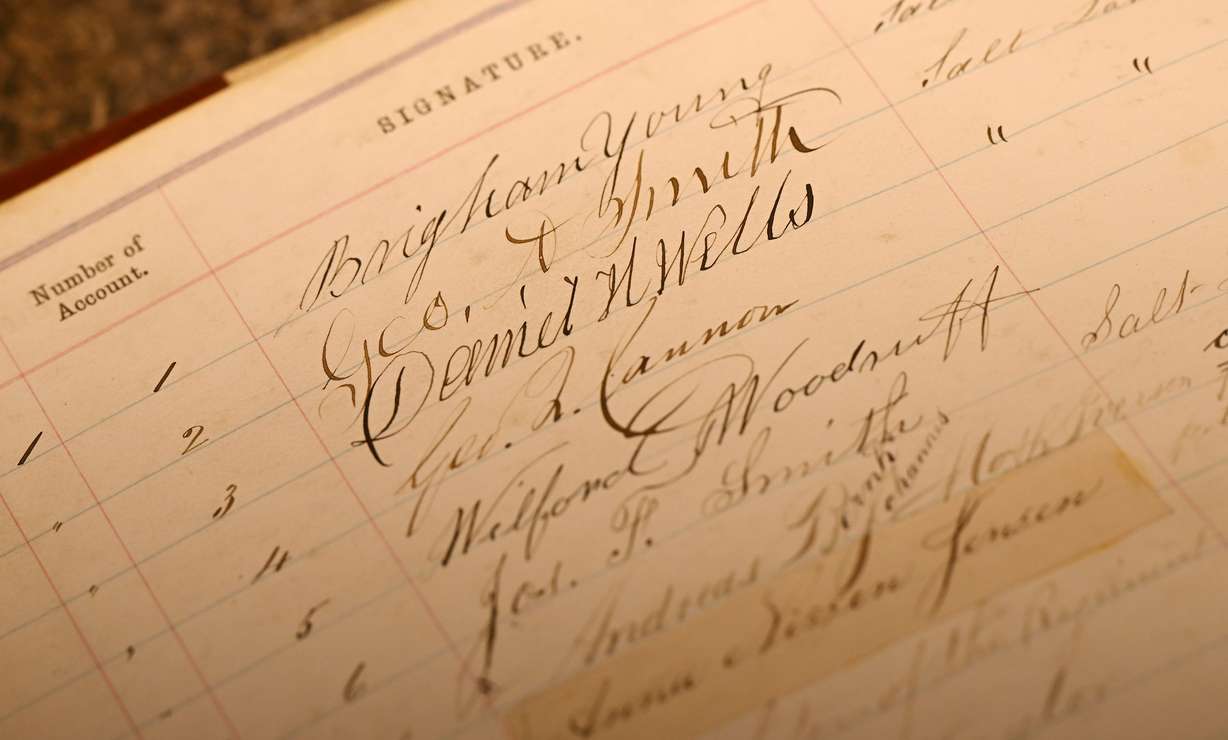 SIGNATURE.
Number of
Account.
1 1 Brigham Young Salt
" 2 Geo. A Smith " "
" 3 Daniel H Wells
" 4 Geo. Q. Cannon
" 5 Wilford Woodruff Salt
6 Jos. F. Smith
Andreas
Anna Jensen
of the